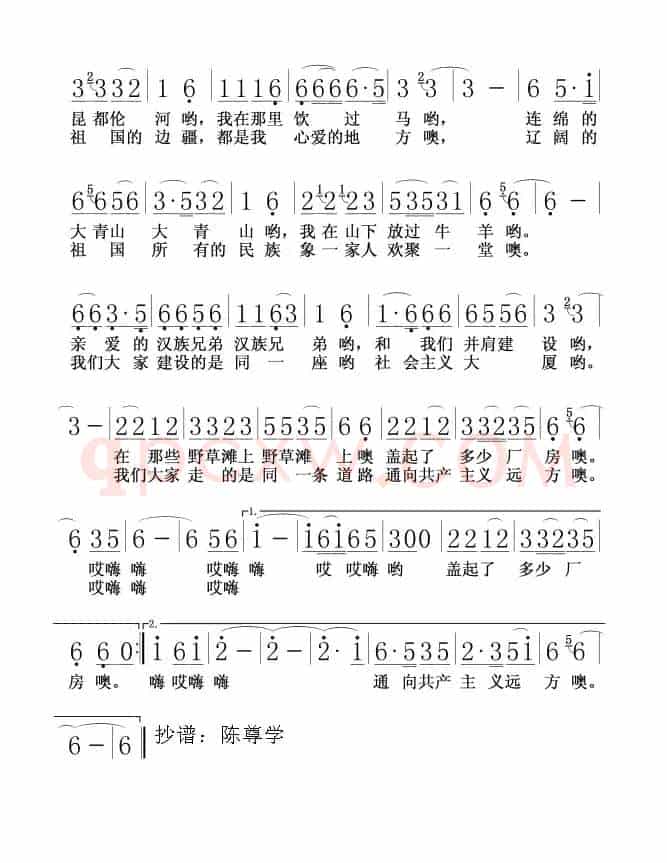 3 2 3 3 3 2 | 1 6 | 1 1 1 6 | 6 6 6 6·5 | 3 2 3 | 3 － | 6 5·i |
昆都伦 河哟，我在那里 饮 过 马 哟， 连绵的
祖 国的 边疆，都是我 心爱的地 方 噢， 辽阔的
6 5 6 5 6 | 3·5 3 2 | 1 6 | 2 1 2 1 2 3 | 5 3 5 3 1 | 6 5 6 | 6 － |
大青山 大 青 山 哟，我 在 山下 放过 牛 羊 哟。
祖 国 所 有的 民 族 象 一家人 欢聚 一 堂 噢。
6 6 3·5 | 6 6 5 6 | 1 1 6 3 | 1 6 | 1·6 6 6 | 6 5 5 6 | 3 2 3 |
亲 爱 的 汉族兄弟 汉族兄 弟 哟，和 我们 并肩建 设 哟，
我们大 家 建设的是 同 一 座 哟 社 会主义 大 厦 哟。
3 － | 2 2 1 2 | 3 3 2 3 | 5 5 3 5 | 6 6 | 2 2 1 2 | 3 3 2 3 5 | 6 5 6 |
在 那些 野草滩上 野草滩 上 噢 盖起了 多少 厂 房 噢。
我们大家 走 的是 同 一条 道 路 通向共产 主义 远 方 噢。
6 3 5 | 6 － | 6 5 6 | i － | i 6 i 6 5 | 3 0 0 | 2 2 1 2 | 3 3 2 3 5 |
1.
哎嗨 嗨 哎嗨 嗨 哎 哎嗨 哟 盖起了 多少 厂
哎嗨 嗨 哎嗨
6 6 0 :‖ i 6 i | 2 － | 2 － | 2·i | 6·5 3 5 | 2·3 5 i | 6 5 6 |
2.
房 噢。 嗨 哎嗨 嗨 通 向共产 主 义远 方 噢。
6 － | 6 ‖ 抄谱：陈尊学
qpcxw.com